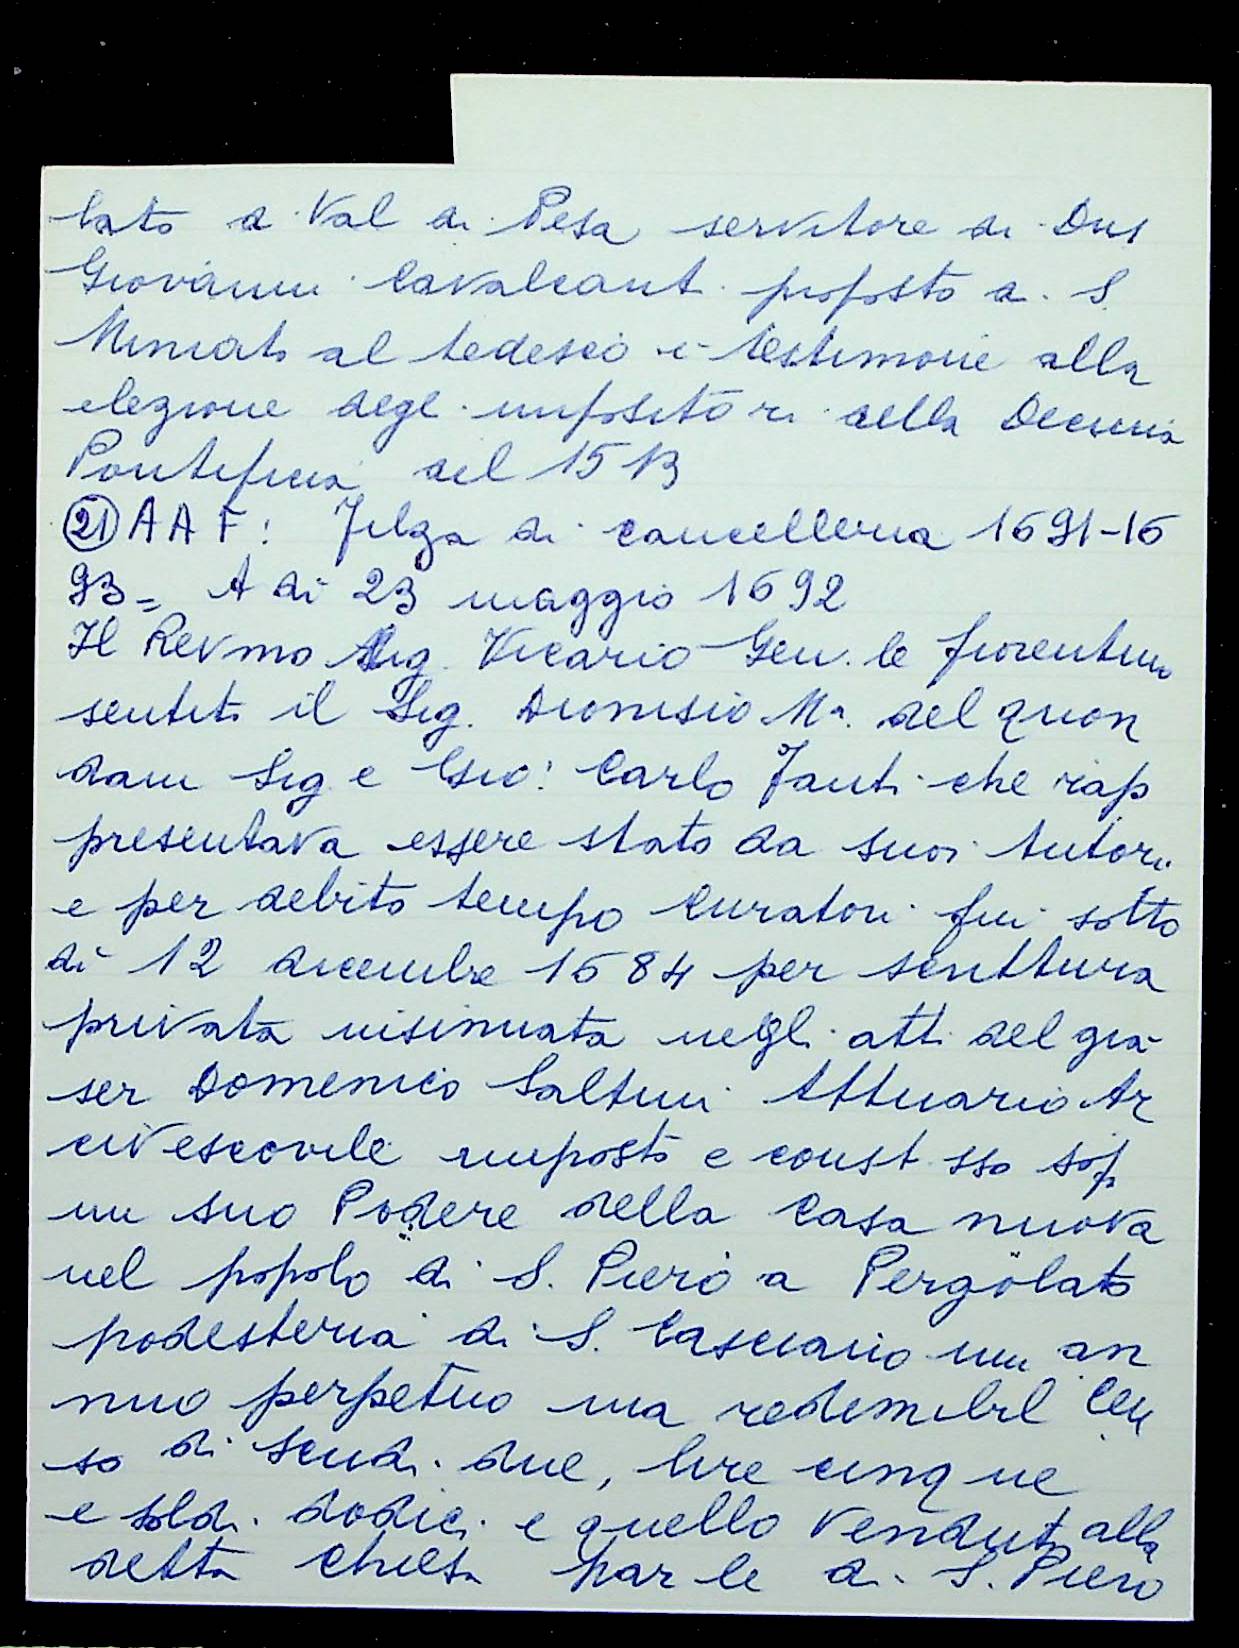 lato a Val di Pesa servitore di Dns
Giovanni Cavalcanti proposto di S.
Miniato al tedesco è testimone alla
elezione degli impositori della Decima
Pontificia del 1513
(21) A A F: Filza di cancelleria 1691-16
93 = A di 23 maggio 1692
Il Revmo Sig. Vicario Gen.le fiorentino
sentito il Sig. Dionisio Ma. del quon
dam Sig.e Gio: Carlo Fanti che rap
presentava essere stato da suoi tutori
e per debito tempo curatori fin sotto
di 12 dicembre 1684 per scrittura
privata insinuata negli atti del già
ser Domenico Saltini Attuario Ar
civescovile imposto e const. sso sop.
un suo Podere della Casa nuova
nel popolo di S. Piero a Pergolato
podesteria di S. Casciano un an
nuo perpetuo ma redimibil Cen
so di scudi due, lire cinque
e soldi dodici e quello venduto alla
detta chiesa par.le di S. Piero